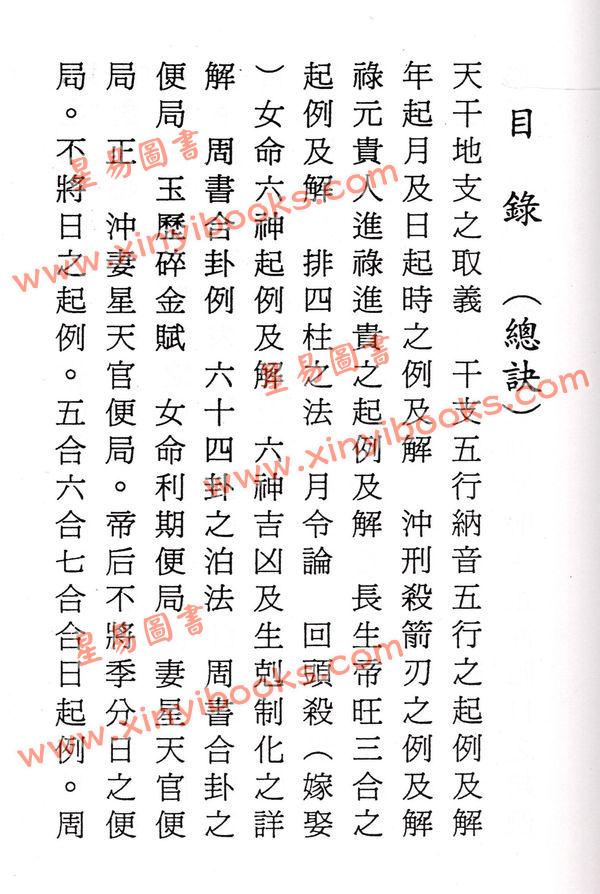 目錄（總訣）
天干地支之取義　干支五行納音五行之起例及解
年起月及日起時之例及解　沖刑殺箭刃之例及解
祿元貴人進祿進貴之起例及解　長生帝旺三合之
起例及解　排四柱之法　月令論　回頭殺（嫁娶
）女命六神起例及解　六神吉凶及生剋制化之詳
解　周書合卦例　六十四卦之泊法　周書合卦之
便局　玉歷碎金賦　女命利期便局　妻星天官便
局　正　沖妻星天官便局。帝后不將季分日之便
局。不將日之起例。五合六合七合合日起例。周
星易圖書
www.xinyibooks.com
星易圖書
www.xinyibooks.com
星易圖書
www.xinyibooks.com